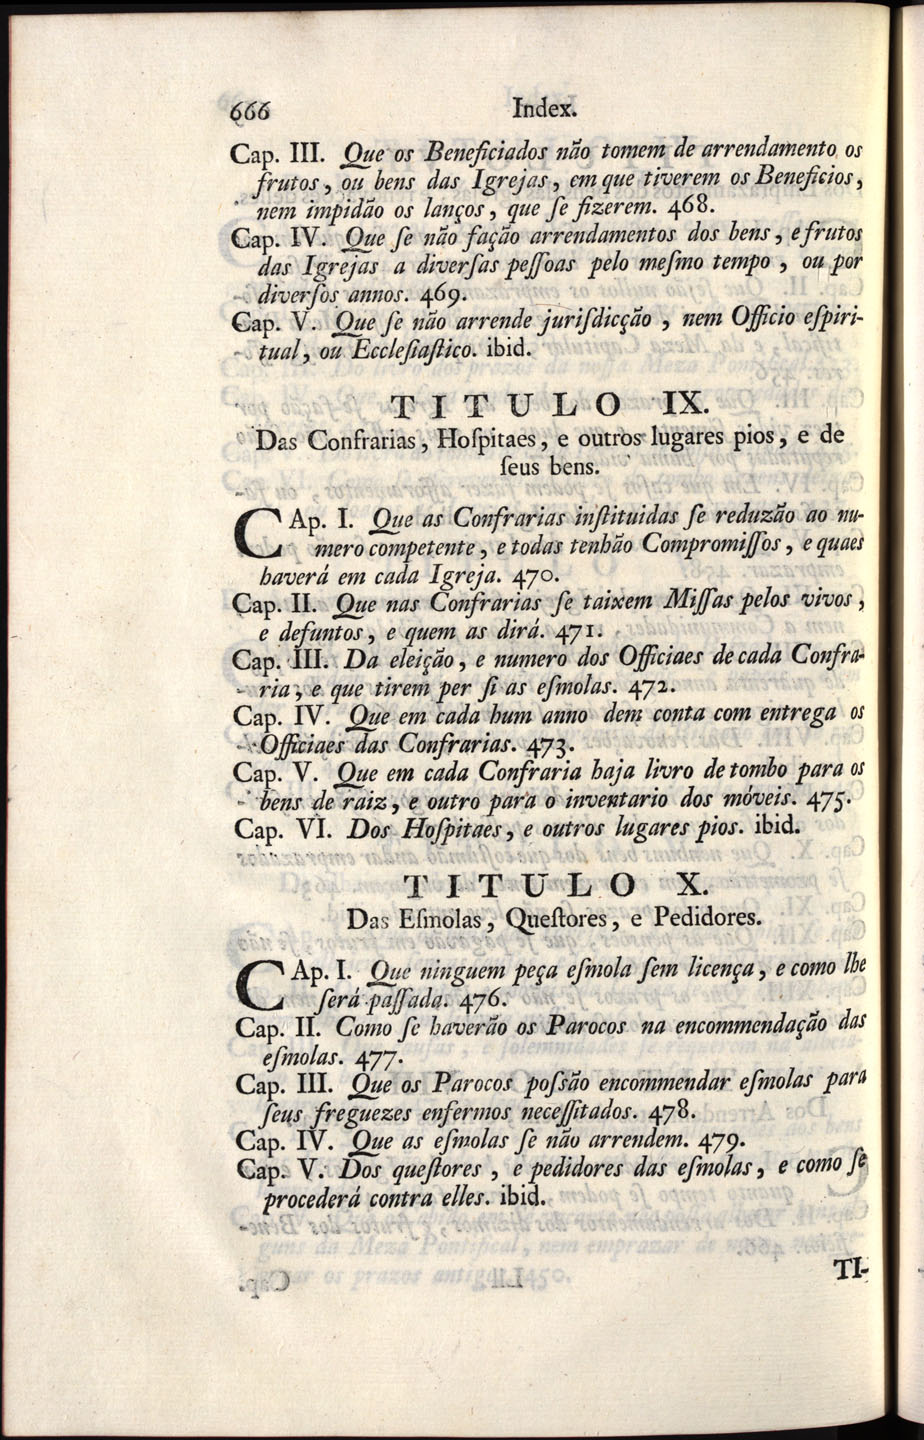 666 Index.
Cap. III. Que os Beneficiados não tomem de arrendamento os
frutos, ou bens das Igrejas, em que tiverem os Beneficios,
nem impidão os lanços, que ſe fizerem. 468.
Cap. IV. Que ſe não fação arrendamentos dos bens, e frutos
das Igrejas a diverſas peſſoas pelo meſmo tempo, ou por
diverſos annos. 469.
Cap. V. Que ſe não arrende juriſdicção, nem Officio eſpiri-
tual, ou Eccleſiaſtico. ibid.
TITULO IX.
Das Confrarias, Hoſpitaes, e outros lugares pios, e de
ſeus bens.
CAp. I. Que as Confrarias inſtituidas ſe reduzão ao nu-
mero competente, e todas tenhão Compromiſſos, e quaes
haverá em cada Igreja. 470.
Cap. II. Que nas Confrarias ſe taixem Miſſas pelos vivos,
e defuntos, e quem as dirá. 471.
Cap. III. Da eleição, e numero dos Officiaes de cada Confra-
ria, e que tirem per ſi as eſmolas. 472.
Cap. IV. Que em cada hum anno dem conta com entrega os
Officiaes das Confrarias. 473.
Cap. V. Que em cada Confraria haja livro de tombo para os
bens de raiz, e outro para o inventario dos móveis. 475.
Cap. VI. Dos Hoſpitaes, e outros lugares pios. ibid.
TITULO X.
Das Eſmolas, Queſtores, e Pedidores.
CAp. I. Que ninguem peça eſmola ſem licença, e como lhe
ſerá paſſada. 476.
Cap. II. Como ſe haverão os Parocos na encommendação das
eſmolas. 477.
Cap. III. Que os Parocos poſsão encommendar eſmolas para
ſeus freguezes enfermos neceſſitados. 478.
Cap. IV. Que as eſmolas ſe não arrendem. 479.
Cap. V. Dos queſtores, e pedidores das eſmolas, e como ſe
procederá contra elles. ibid.
TI-